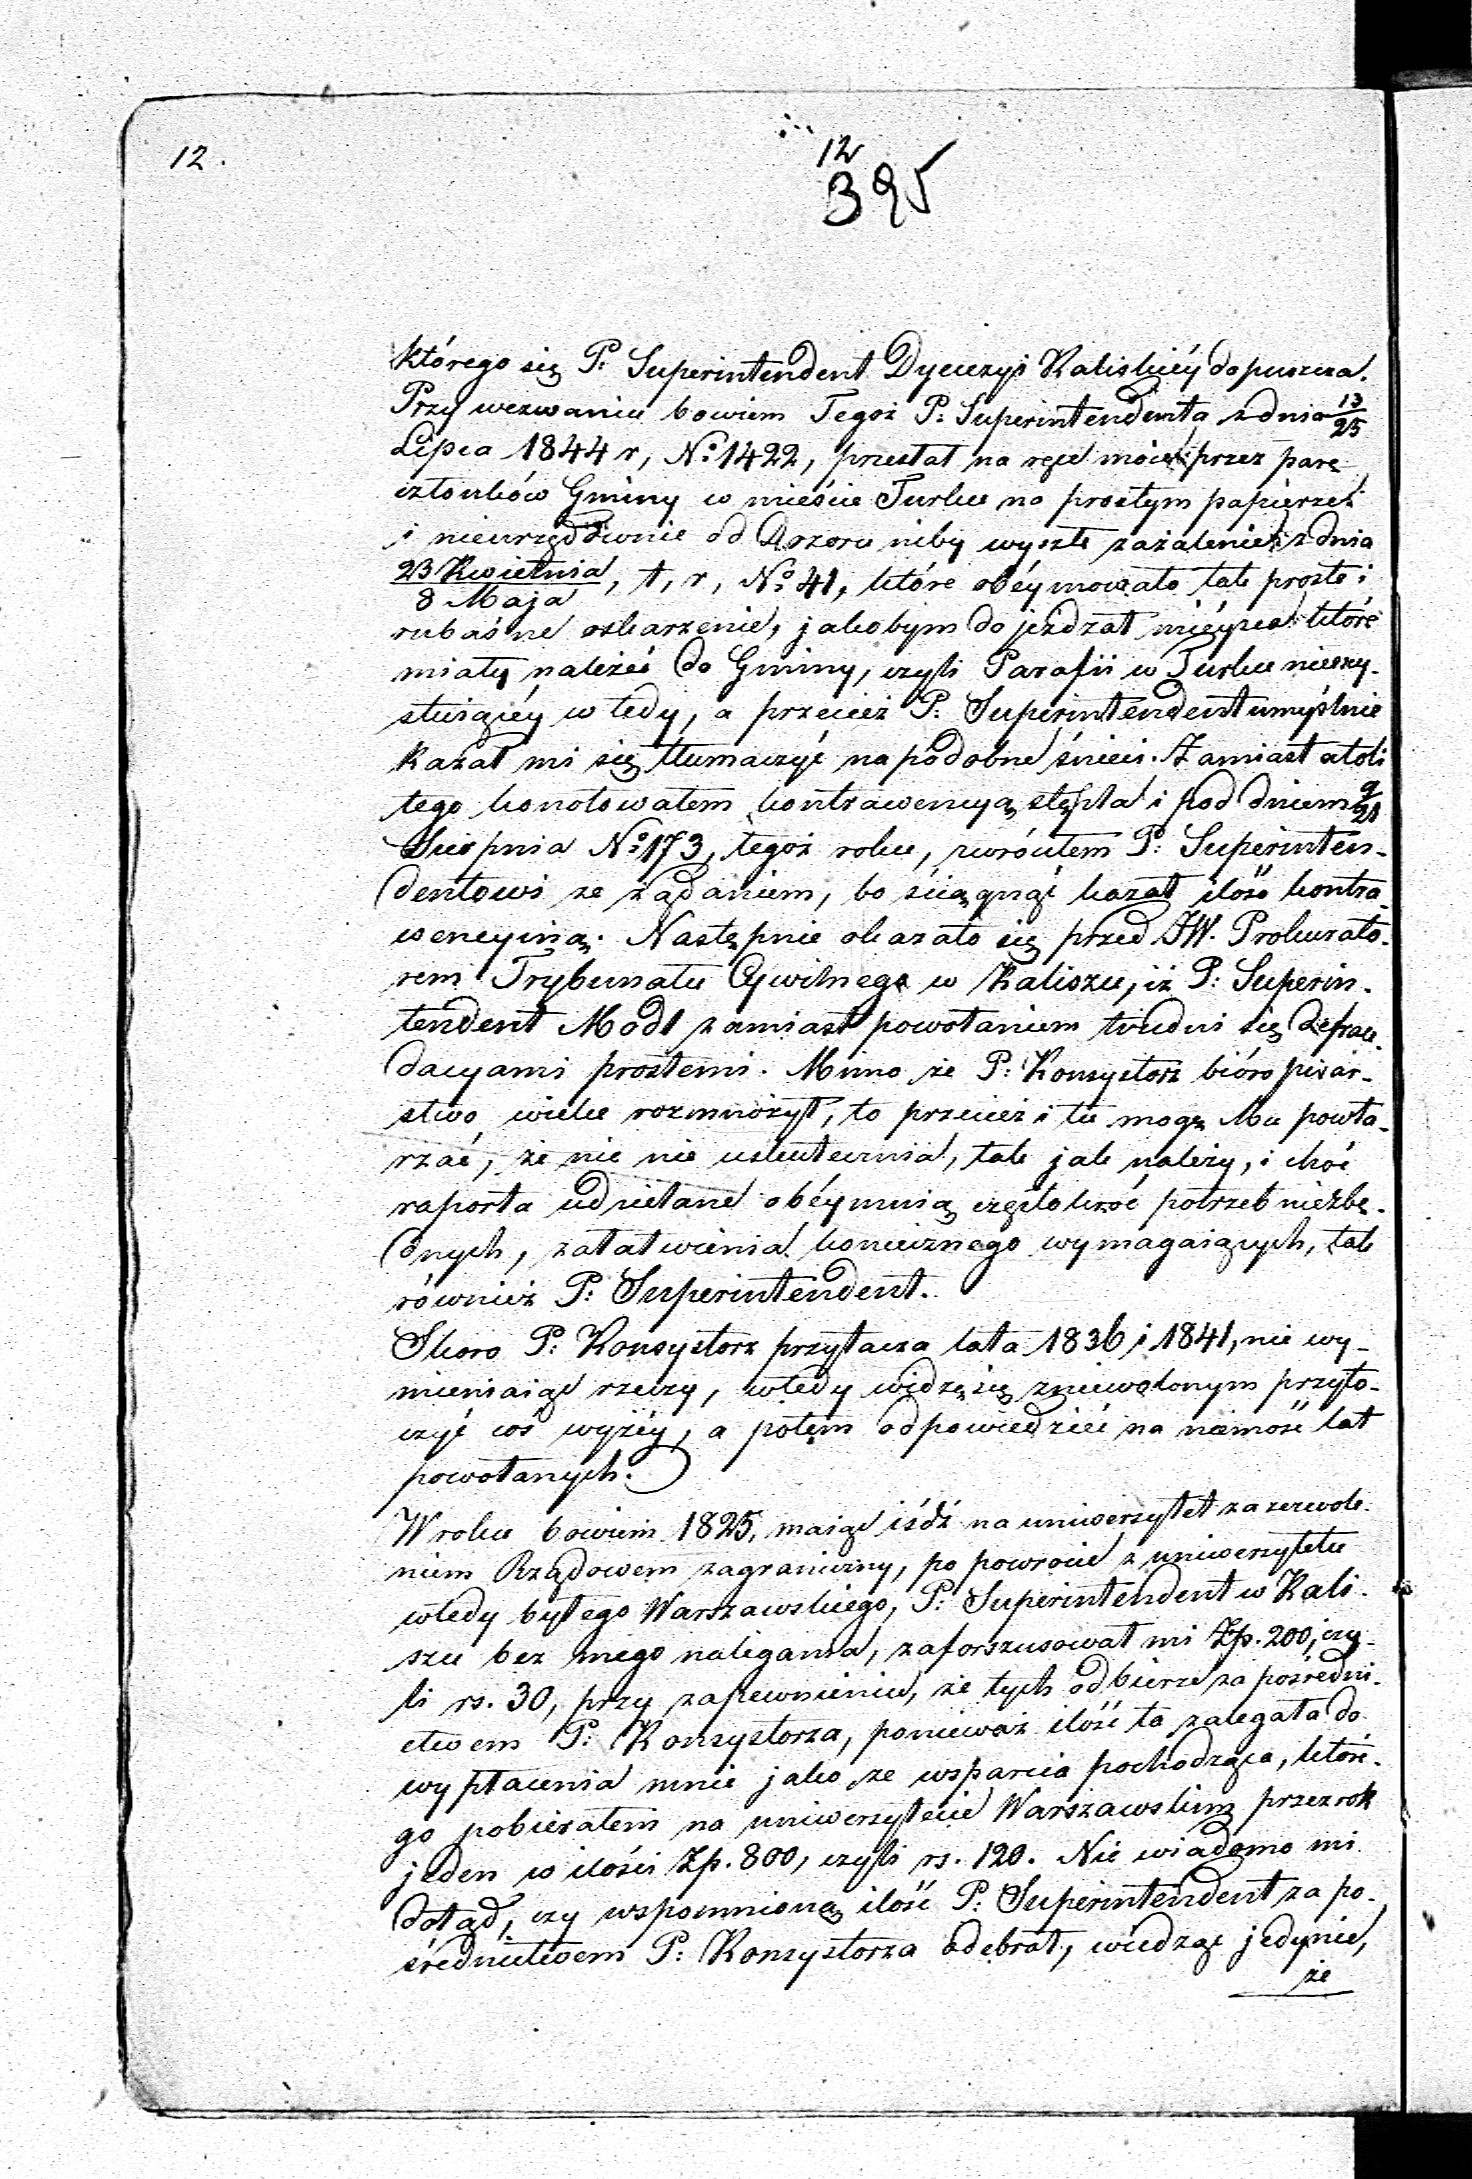 12.
12
395
którego się P: Superintendent Dyecezyi Kaliskiéy dopuszcza.
Przy wezwaniu bowiem Tegoż P: Superintendenta z dnia 13/25
Lipca 1844 r, No: 1422, przesłał na ręce moie przez parę
członków Gminy w mieście Turku na prostym papierze
i nieurzędownie od Dozoru niby wyszłe zażalenie z dnia
23 Kwietnia / 8 Maja, t, r, No: 41, które obéymowało tak proste i
rubaśne oskarzenie, jakobym do jeżdzał mieysca które
miały należéć do Gminy, czyli Parafii w Turku nieexy-
stuiącéy wtedy, a przecież P: Superintendent umyślnie
kazał mi się tłumaczyć na podobne śmieci. Zamiast atoli
tego konotowałem kontrawencyą stępla i pod dniem 9/21
Sierpnia No: 173, tegoż roku, zwróciłem P: Superinten-
dentowi ze żądaniem, bo ściągnąć kazał ilość kontra-
wencyiną. Następnie okazało się przed JW. Prokurato-
rem Trybunału Cywilnego w Kaliszu, iż P: Superin-
tendent Modl zamiast powołaniem trudni się defrau-
dacyami prostemi. Mimo że P: Konsystorz bióropisar-
stwo wielce rozmnożył, to przecież i tu mogę Mu powta-
rzać, że nic nie uskutecznia, tak jak należy, i choć
raporta udzielane obéymuią częstokroć potrzeb niezbę-
dnych, załatwienia koniecznego wymagaiących, tak
również P: Superintendent.
Skoro P: Konsystorz przytacza lata 1836 i 1841, nie wy-
mieniaiąc rzeczy, wtedy widzę się zniewolonym przyto-
czyć coś wyżéy, a potem odpowiedzieć na niemość lat
powołanych.
W roku bowiem 1825, maiąc iśdź na uniwersytet za zezwole-
niem Rządowem zagraniczny, po powrocie z uniwersytetu
wtedy byłego Warszawskiego, P: Superintendent w Kali-
szu bez mego nalegania, zaforszusował mi Złp. 200, czy-
li rs. 30, przy zapewnieniu, że tych odbierze za pośredni-
ctwem P: Konsystorza, ponieważ ilość ta zalegała do
wypłacenia mnie jako ze wsparcia pochodząca, które-
go pobierałem na uniwersytecie Warszawskim przez rok
jeden w ilości Złp. 800, czyli rs. 120. Nie wiadomo mi
dotąd, czy wspomnioną ilość P: Superintendent za po-
średnictwem P: Konsystorza odebrał, wiedząc jedynie,
że